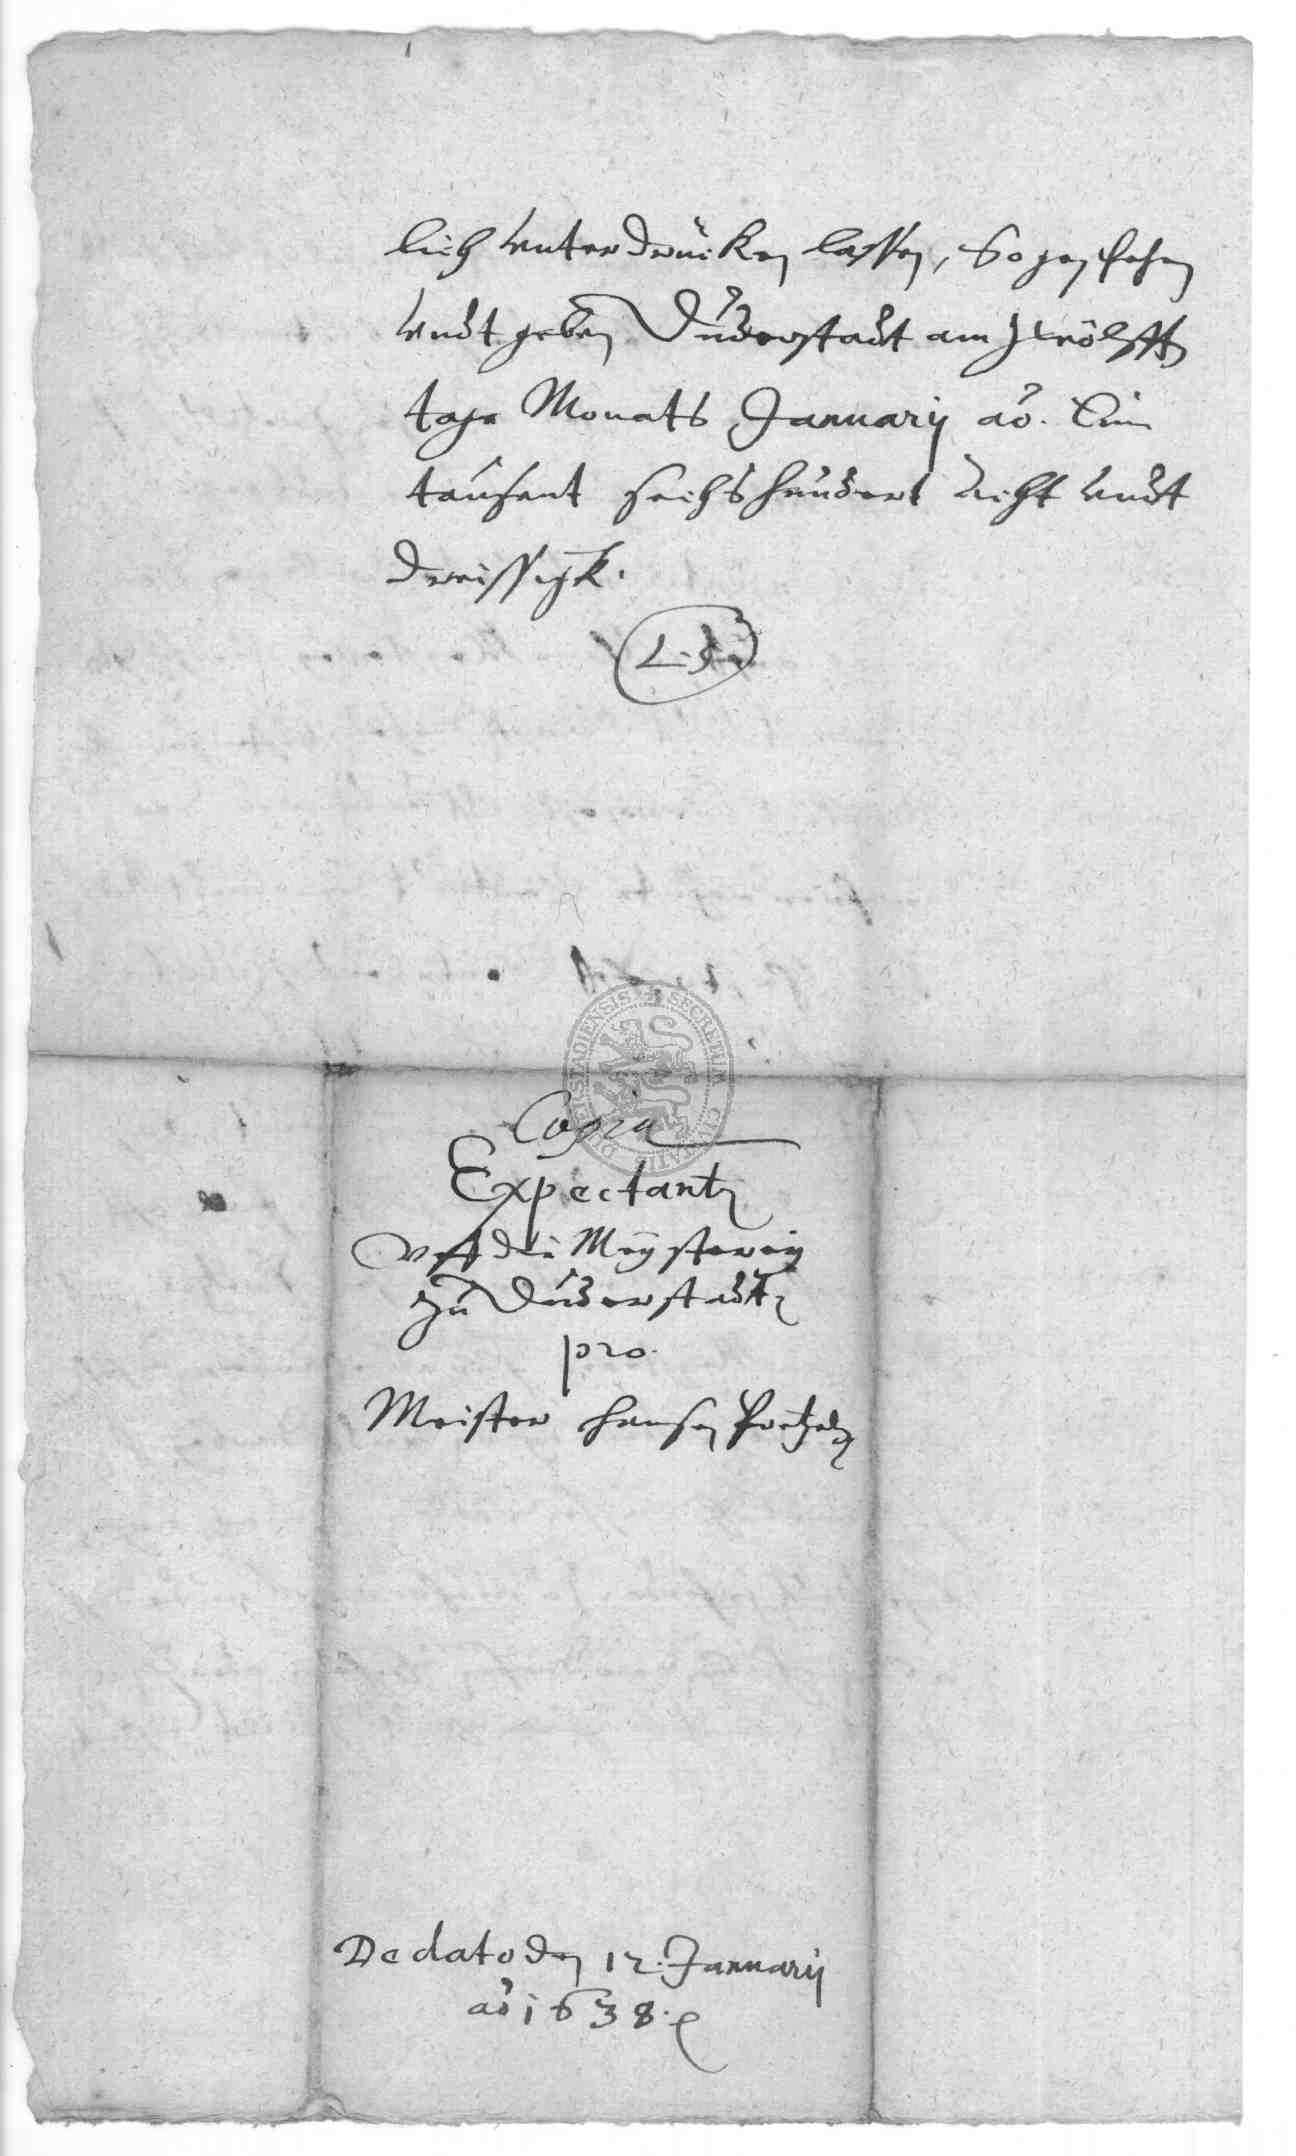 lich unterdrücken lassen, So geschehen
undt geben Duderstadt am zwölfften
tage Monats Januarij aō. Ein
tausent sechshundert acht undt
dreissigk.
L.S.
SECRETUM CIVITATIS DUDERSTADIENSIS
Copia
Expectantz
uff die Meysterey
zu Duderstadt
pro
Meister Hansen
De dato den 12. Januarij
aō 1638.